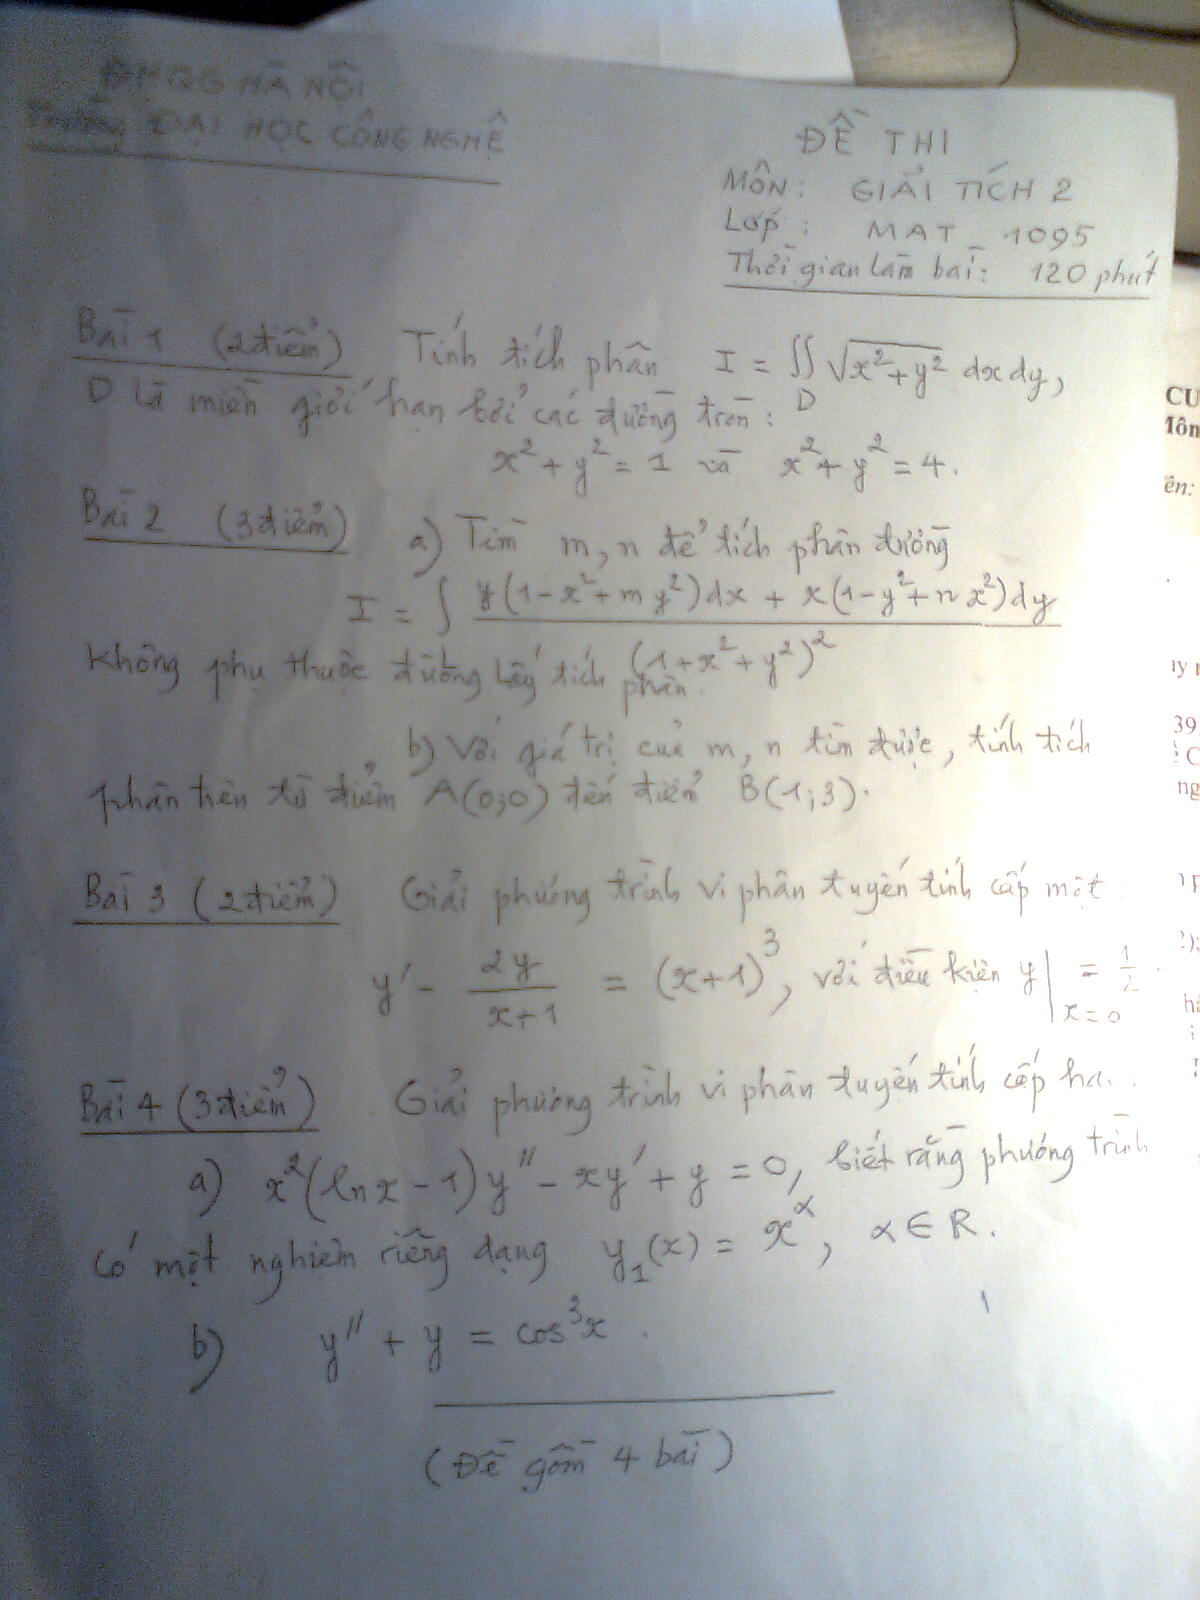 ĐHQG HÀ NỘI
Trường ĐẠI HỌC CÔNG NGHỆ
ĐỀ THI
MÔN: GIẢI TÍCH 2
Lớp: MAT 1095
Thời gian làm bài: 120 phút
Bài 1 (2 điểm) Tính tích phân I = ∬ √(x²+y²) dx dy,
D
D là miền giới hạn bởi các đường tròn:
x² + y² = 1 và x² + y² = 4.
Bài 2 (3 điểm) a) Tìm m, n để tích phân đường
I = ∫ y(1-x²+my²)dx + x(1-y²+nx²)dy
(1+x²+y²)²
Không phụ thuộc đường lấy tích phân.
b) Với giá trị của m, n tìm được, tính tích
phân trên từ điểm A(0;0) đến điểm B(1;3).
Bài 3 (2 điểm) Giải phương trình vi phân tuyến tính cấp một:
y' - 2y/(x+1) = (x+1)³, với điều kiện y|x=0 = 1/2.
Bài 4 (3 điểm) Giải phương trình vi phân tuyến tính cấp hai:
a) x²(lnx - 1)y'' - xy' + y = 0, biết rằng phương trình
có một nghiệm riêng dạng y₁(x) = x^α, α ∈ R.
b) y'' + y = cos³x.
(Đề gồm 4 bài)
CU
Môn
ên:
39
ng